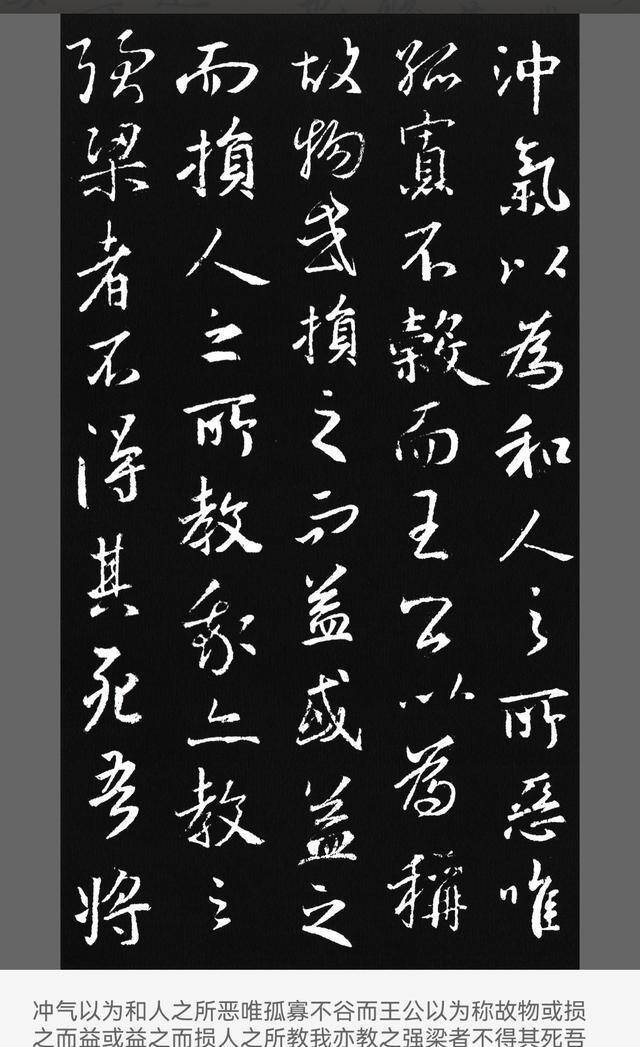 沖氣以為和人之所惡唯
孤寡不穀而王公以為稱
故物或損之而益或益之
而損人之所教我亦教之
强梁者不得其死吾將
冲气以为和人之所恶唯孤寡不谷而王公以为称故物或损
之而益或益之而损人之所教我亦教之强梁者不得其死吾